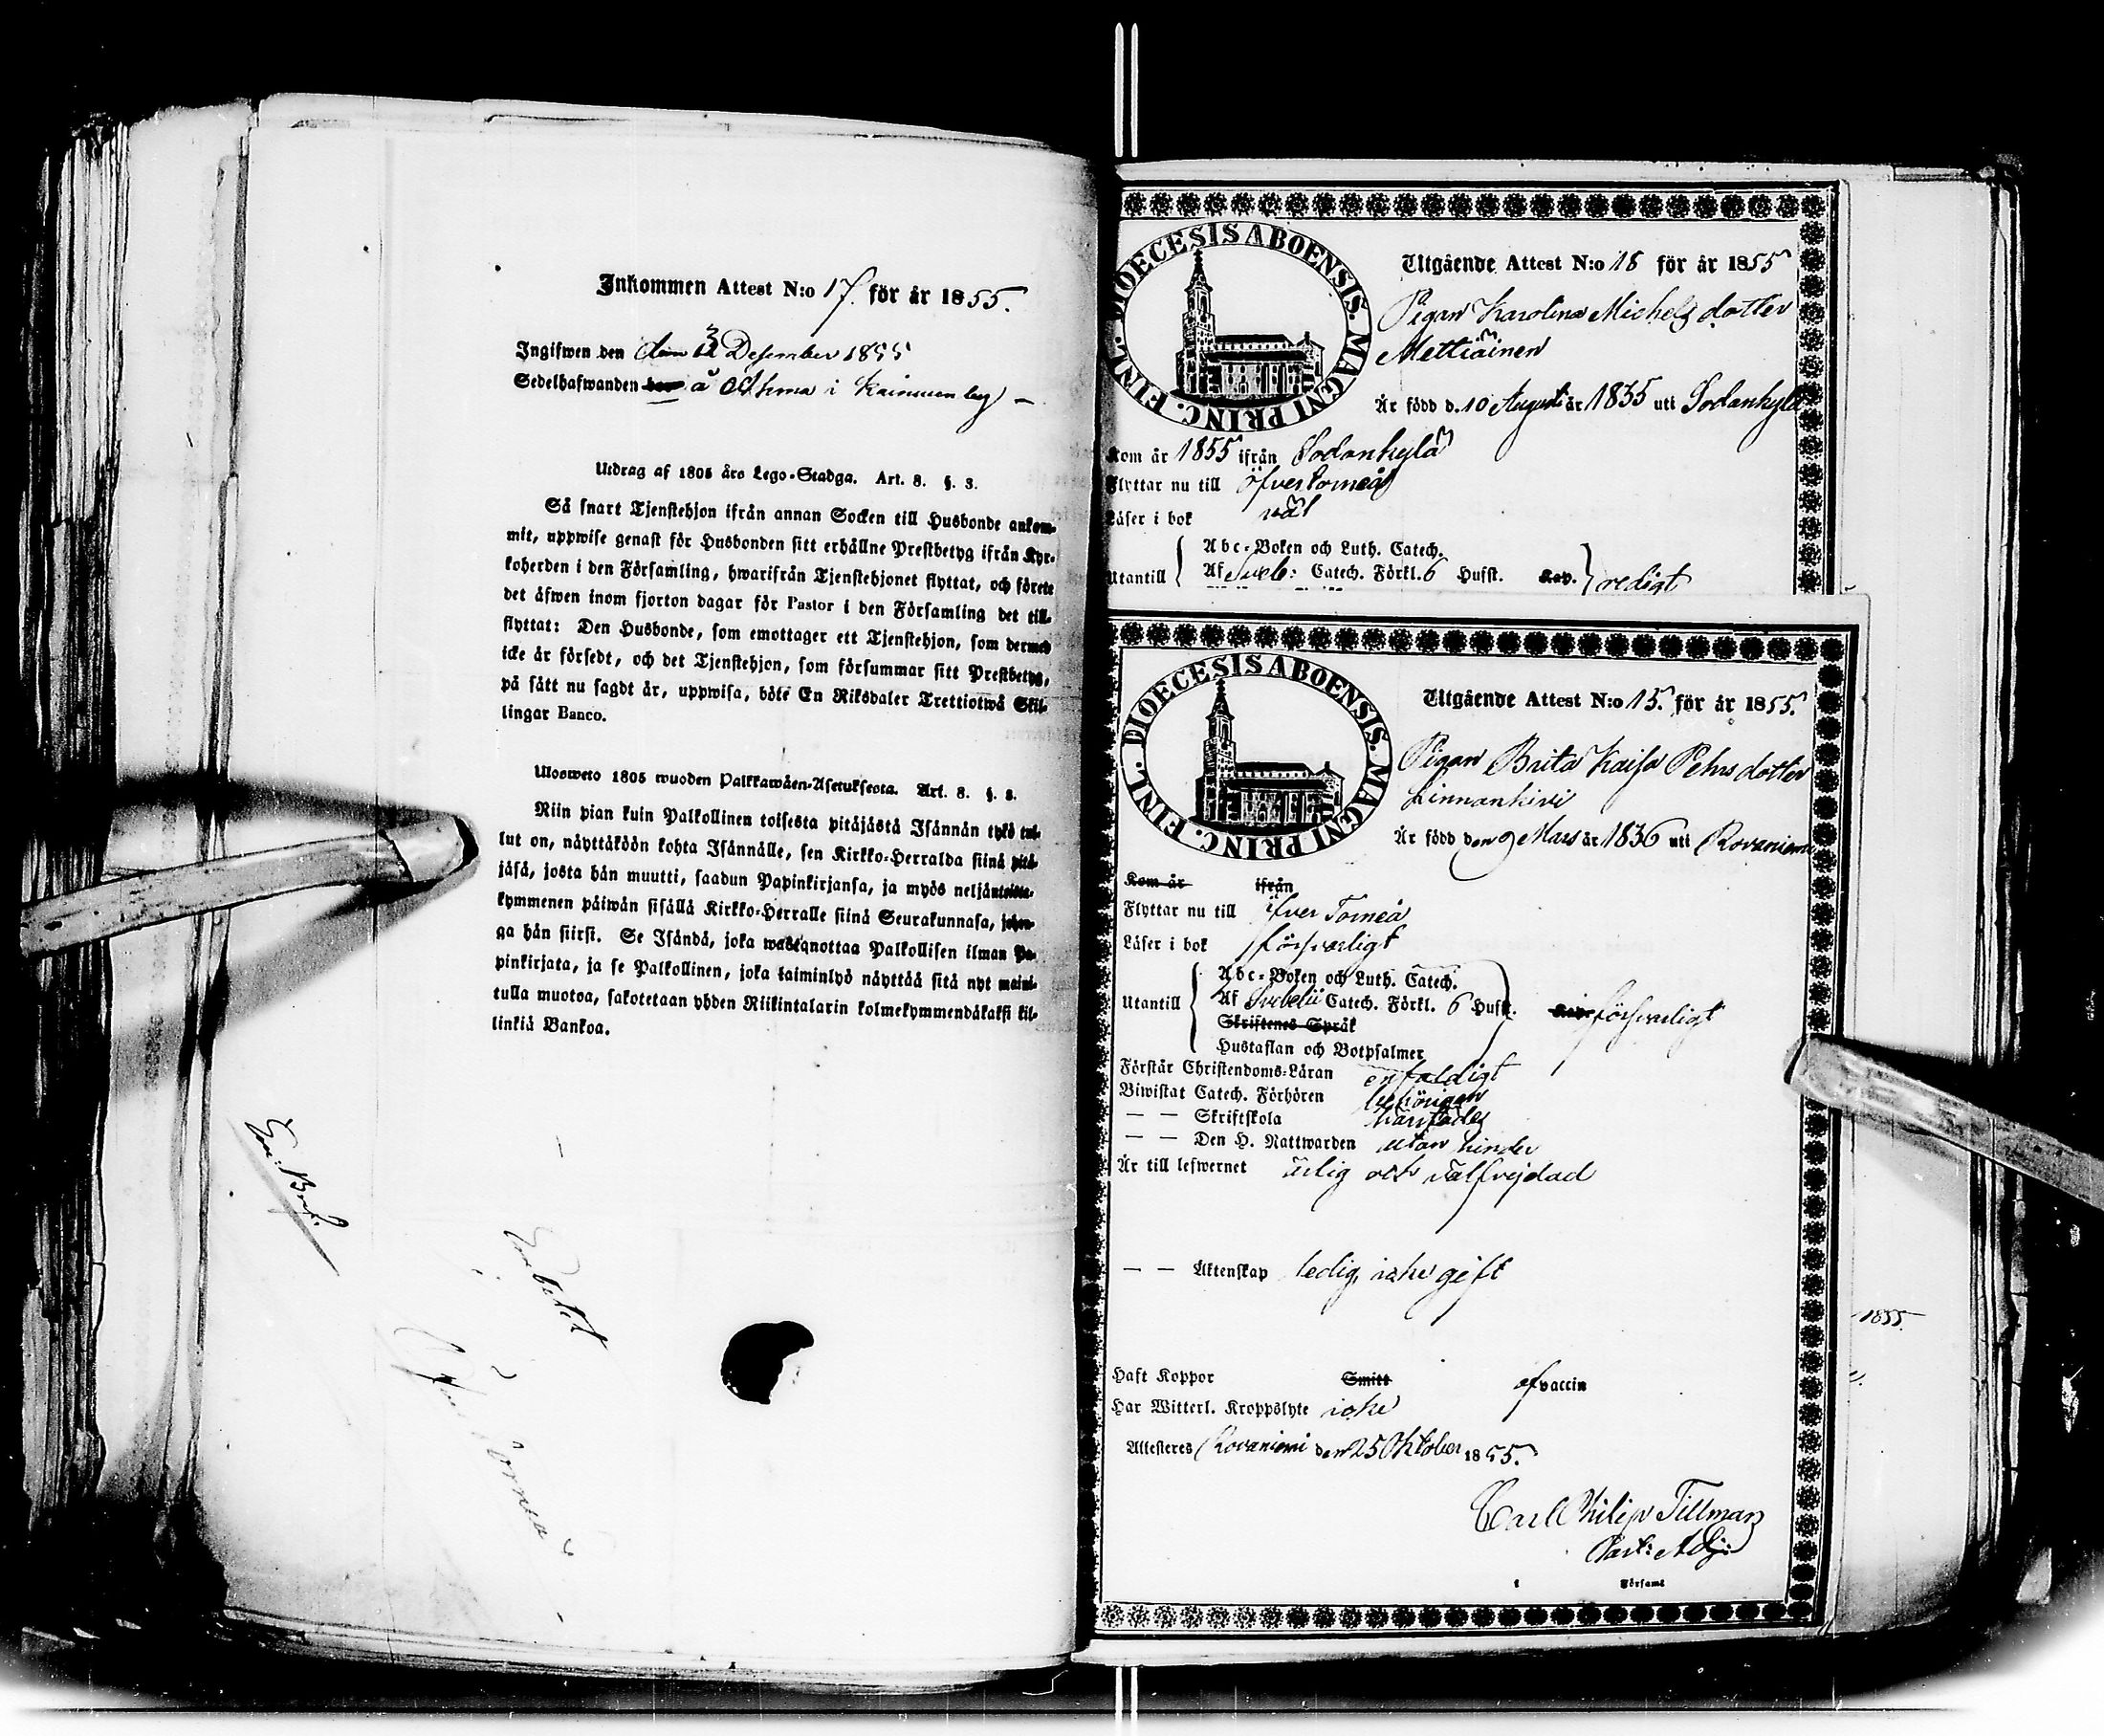 Inkommen Attest N:o 17. för år 1855.
Ingifwen den 3 Desember 1855
Sedelhafwanden å i by
Utdrag af 1805 års Lego-Stadga. Art. 8. §. 3.
Så snart Tjenstehjon ifrån annan Socken till Husbonde ankom-
mit, uppwise genast för Husbonden sitt erhållne Prestbetyg ifrån Kyr-
koherden i den Församling, hwarifrån Tjenstehjonet flyttat, och förete
det äfwen inom fjorton dagar för Pastor i den Församling det till-
flyttat: Den Husbonde, som emottager ett Tjenstehjon, som dermed
icke är försedt, och det Tjenstehjon, som försummar sitt Prestbetyg,
på sätt nu sagdt är, uppwisa, böte En Riksdaler Trettiotwå Skil-
lingar Banco.
Ulosweto 1805 wuoden Palkkawäen-Asetuksesta. Art. 8. §. 3.
Niin pian kuin Palkollinen toisesta pitäjästä Isännän tykö tul-
lut on, näyttäköön kohta Isännälle, sen Kirkko-Herralda siinä pitä-
jäsä, josta hän muutti, saadun Papinkirjansa, ja myös neljäntoista-
kymmenen päiwän sisällä Kirkko-Herralle siinä Seurakunnasa, johon-
ga hän siirsi. Se Isändä, joka wastanottaa Palkollisen ilman Pa-
pinkirjata, ja se Palkollinen, joka laiminlyö näyttää sitä nyt maini-
tulla muotoa, sakotetaan yhden Riikintalarin kolmekymmendäkaksi kil-
linkiä Bankoa.
DIOECESIS ABOENSIS. MAGNI PRINC. FINL.
Utgående Attest N:o 18 för år 1855
Pigan Karolina Michels dotter
Mettiäinen
Är född d. 10 Augusti år 1835 uti Sodankylä
Kom år 1855 ifrån Sodankylä
Flyttar nu till Öfvertorneå
Läser i bok väl
Utantill
Abc-Boken och Luth. Catech.
Af Sveb: Catech. Förkl. 6 Hufst. Kap. redigt
DIOECESIS ABOENSIS. MAGNI PRINC. FINL.
Utgående Attest N:o 15. för år 1855.
Pigan Brita Kaisa Pehrs dotter
Linnankivi
Är född den 9 Mars år 1836 uti Rovaniemi
Kom år ifrån
Flyttar nu till Öfver Torneå
Läser i bok försvarligt
Utantill
Abc-Boken och Luth. Catech.
Af Svebelii Catech. Förkl. 6 Hufst. Kap. försvarligt
Skriftenes Språk
Hustaflan och Botpsalmer
Förstår Christendoms-Läran enfaldigt
Biwistat Catech. Förhören behörigen
— — Skriftskola
— — Den H. Nattwarden utan hinder
Är till lefwernet ärlig och välfrejdad
— — Äktenskap ledig, icke gift
Haft Koppor Smitt af vaccin
Har Witterl. Kroppslyte icke
Attesteres Rovaniemi den 25 Oktober 1855.
Carl Philip Tillman
Past: Adj:
Församl
1855